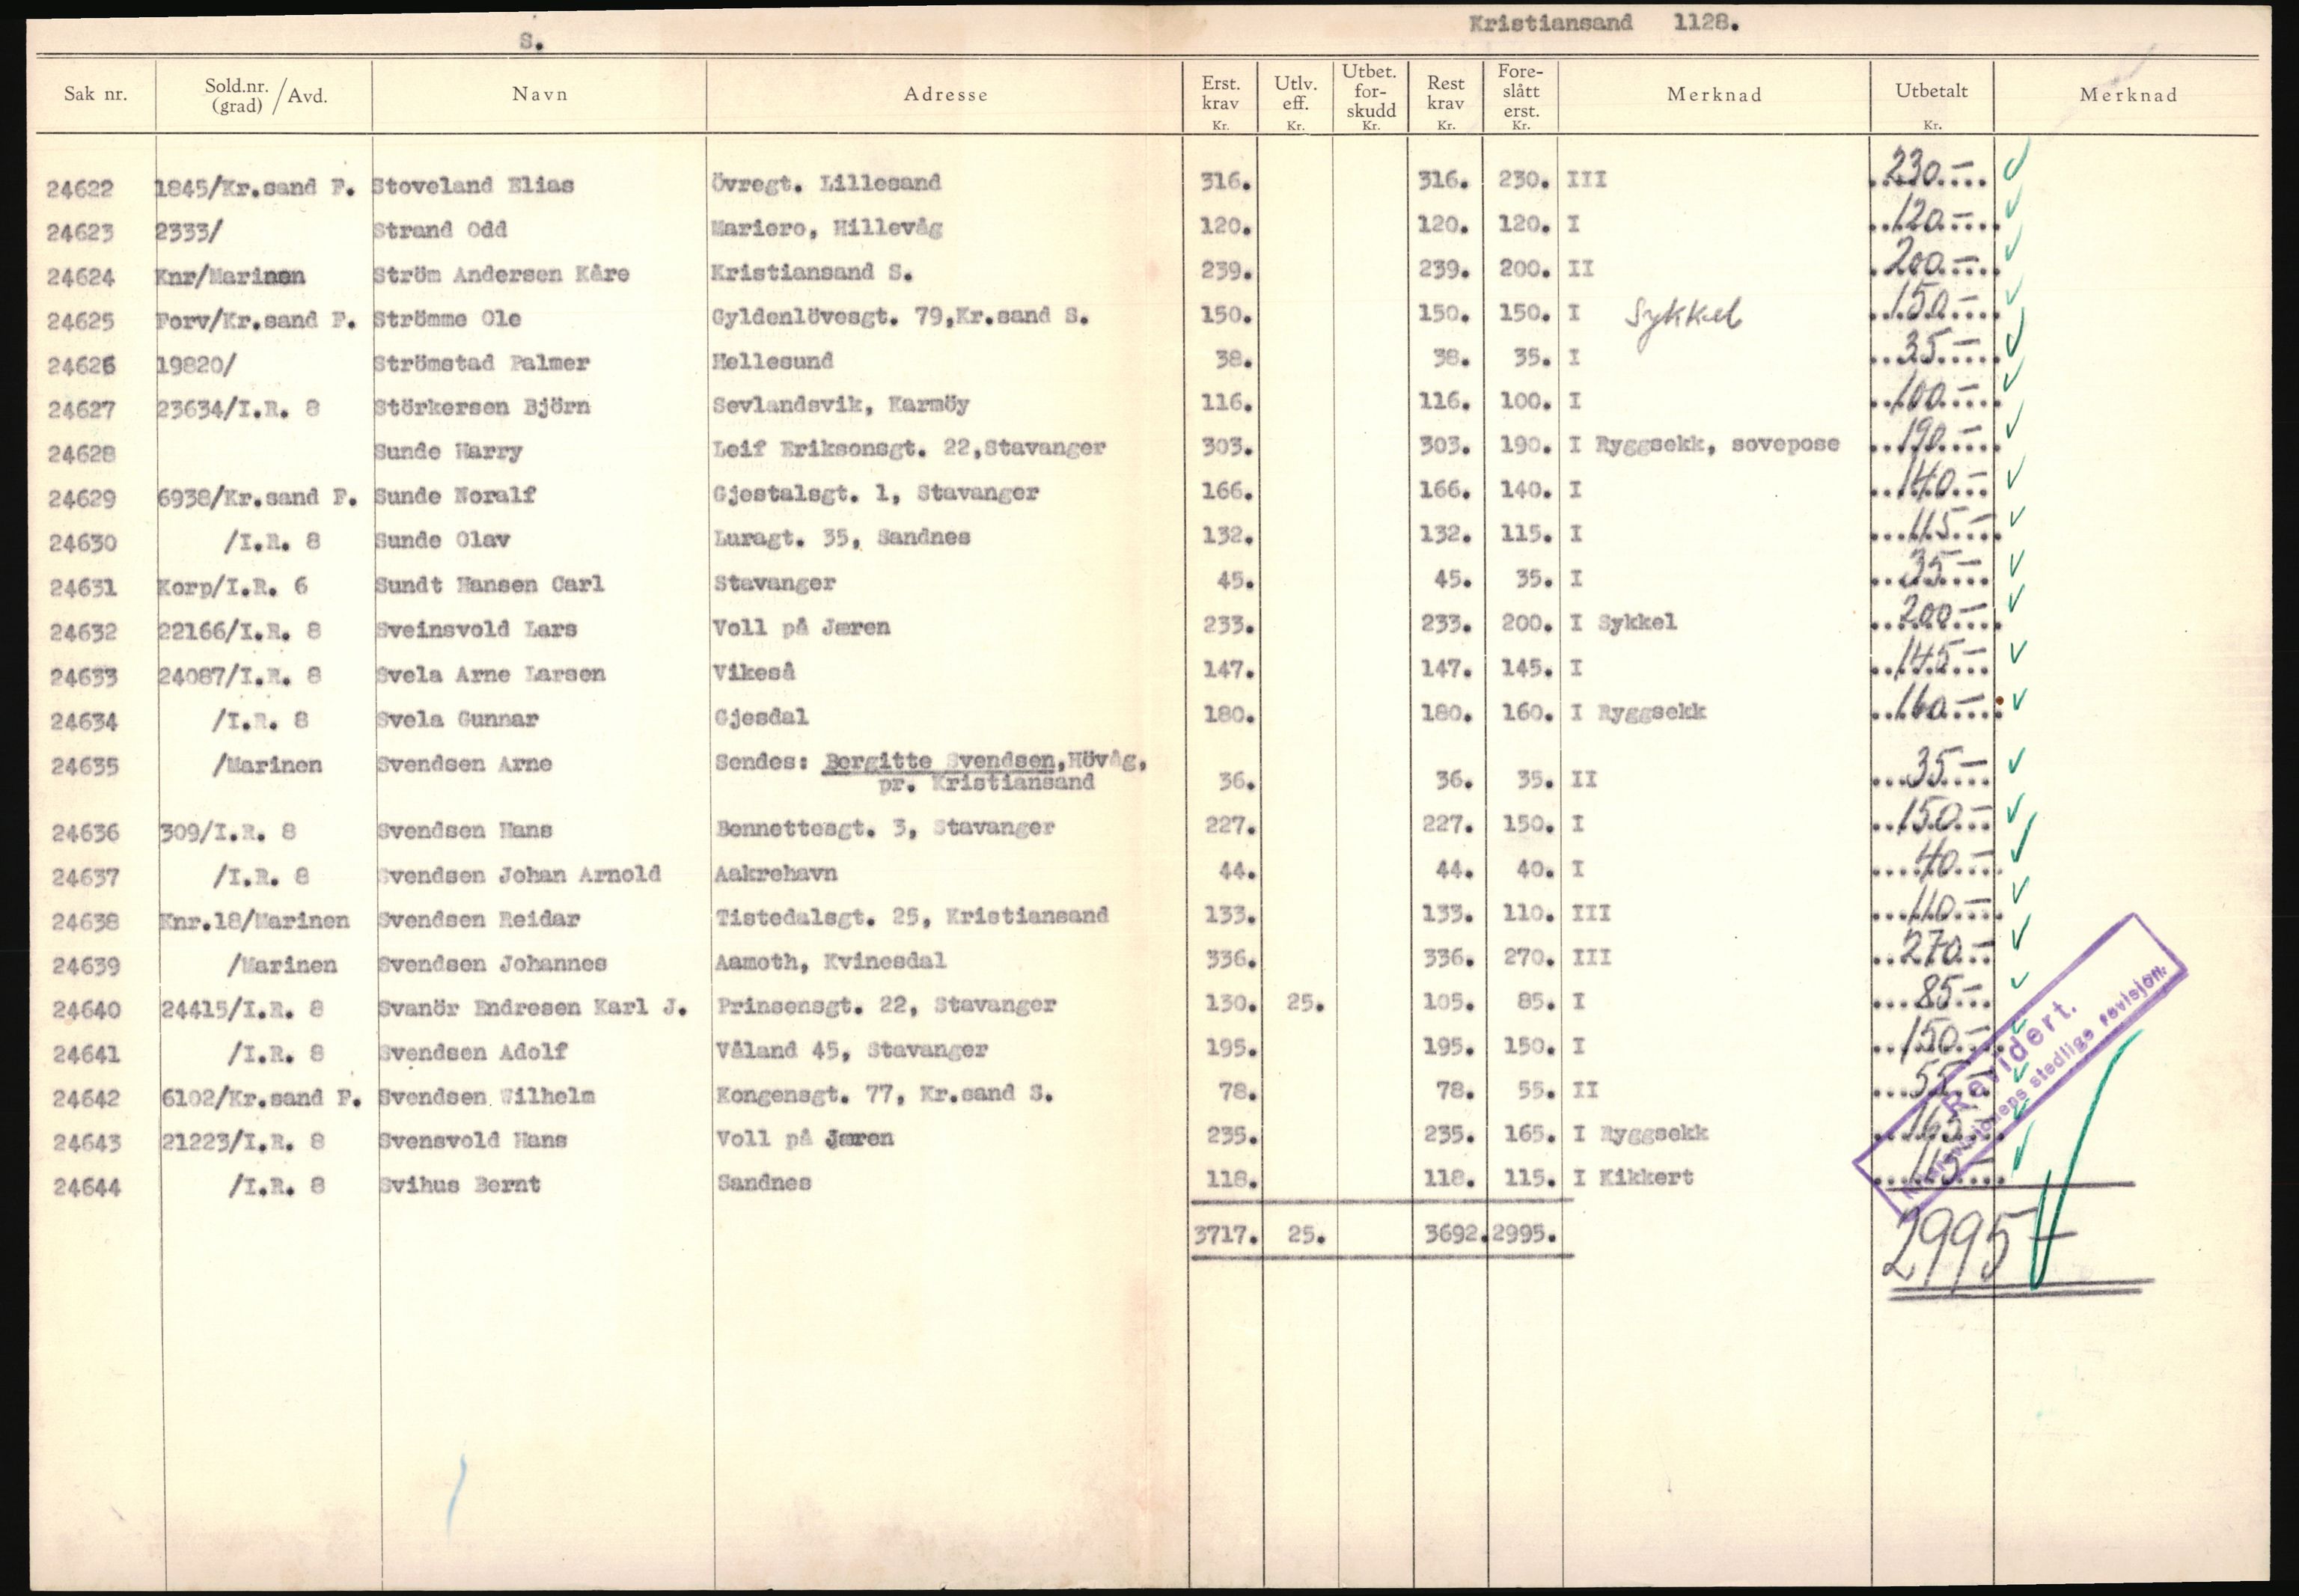 S. Kristiansand 1128.
Sak nr. Sold.nr. (grad) / Avd. Navn Adresse Erst. krav Kr. Utlv. eff. Kr. Utbet. for- skudd Kr. Rest krav Kr. Fore- slått erst. Kr. Merknad Utbetalt Kr. Merknad
24622 1845/Kr.sand F. Stoveland Elias Övregt. Lillesand 316. 316. 230. III 230.-
24623 2333/ Strand Odd Mariero, Hillevåg 120. 120. 120. I 120.-
24624 Knr/Marinen Ström Andersen Kåre Kristiansand S. 239. 239. 200. II 200.-
24625 Forv/Kr.sand F. Strömme Ole Gyldenlövesgt. 79,Kr.sand S. 150. 150. 150. I Sykkel 150.-
24626 19820/ Strömstad Palmer Hellesund 38. 38. 35. I 35.-
24627 23634/I.R. 8 Störkersen Björn Sevlandsvik, Karmöy 116. 116. 100. I 100.-
24628 Sunde Harry Leif Eriksonsgt. 22,Stavanger 303. 303. 190. I Ryggsekk, sovepose 190.-
24629 6938/Kr.sand F. Sunde Noralf Gjestalsgt. 1, Stavanger 166. 166. 140. I 140.-
24630 /I.R. 8 Sunde Olav Luragt. 35, Sandnes 132. 132. 115. I 115.-
24631 Korp/I.R. 6 Sundt Hansen Carl Stavanger 45. 45. 35. I 35.-
24632 22166/I.R. 8 Sveinsvold Lars Voll på Jæren 233. 233. 200. I Sykkel 200.-
24633 24087/I.R. 8 Svela Arne Larsen Vikeså 147. 147. 145. I 145.-
24634 /I.R. 8 Svela Gunnar Gjesdal 180. 180. 160. I Ryggsekk 160.-
24635 /Marinen Svendsen Arne Sendes: Bergitte Svendsen,Hövåg,
pr. Kristiansand 36. 36. 35. II 35.-
24636 309/I.R. 8 Svendsen Hans Bennettesgt. 3, Stavanger 227. 227. 150. I 150.-
24637 /I.R. 8 Svendsen Johan Arnold Aakrehavn 44. 44. 40. I 40.-
24638 Knr.18/Marinen Svendsen Reidar Tistedalsgt. 25, Kristiansand 133. 133. 110. III 110.-
24639 /Marinen Svendsen Johannes Aamoth, Kvinesdal 336. 336. 270. III 270.-
24640 24415/I.R. 8 Svanör Endresen Karl J. Prinsensgt. 22, Stavanger 130. 25. 105. 85. I 85.-
24641 /I.R. 8 Svendsen Adolf Våland 45, Stavanger 195. 195. 150. I 150.-
24642 6102/Kr.sand F. Svendsen Wilhelm Kongensgt. 77, Kr.sand S. 78. 78. 55. II 55.-
24643 21223/I.R. 8 Svensvold Hans Voll på Jæren 235. 235. 165. I Ryggsekk 165.-
24644 /I.R. 8 Svihus Bernt Sandnes 118. 118. 115. I Kikkert 115.-
3717. 25. 3692. 2995. 2995.-
Revidert.
stedlige revisjon.